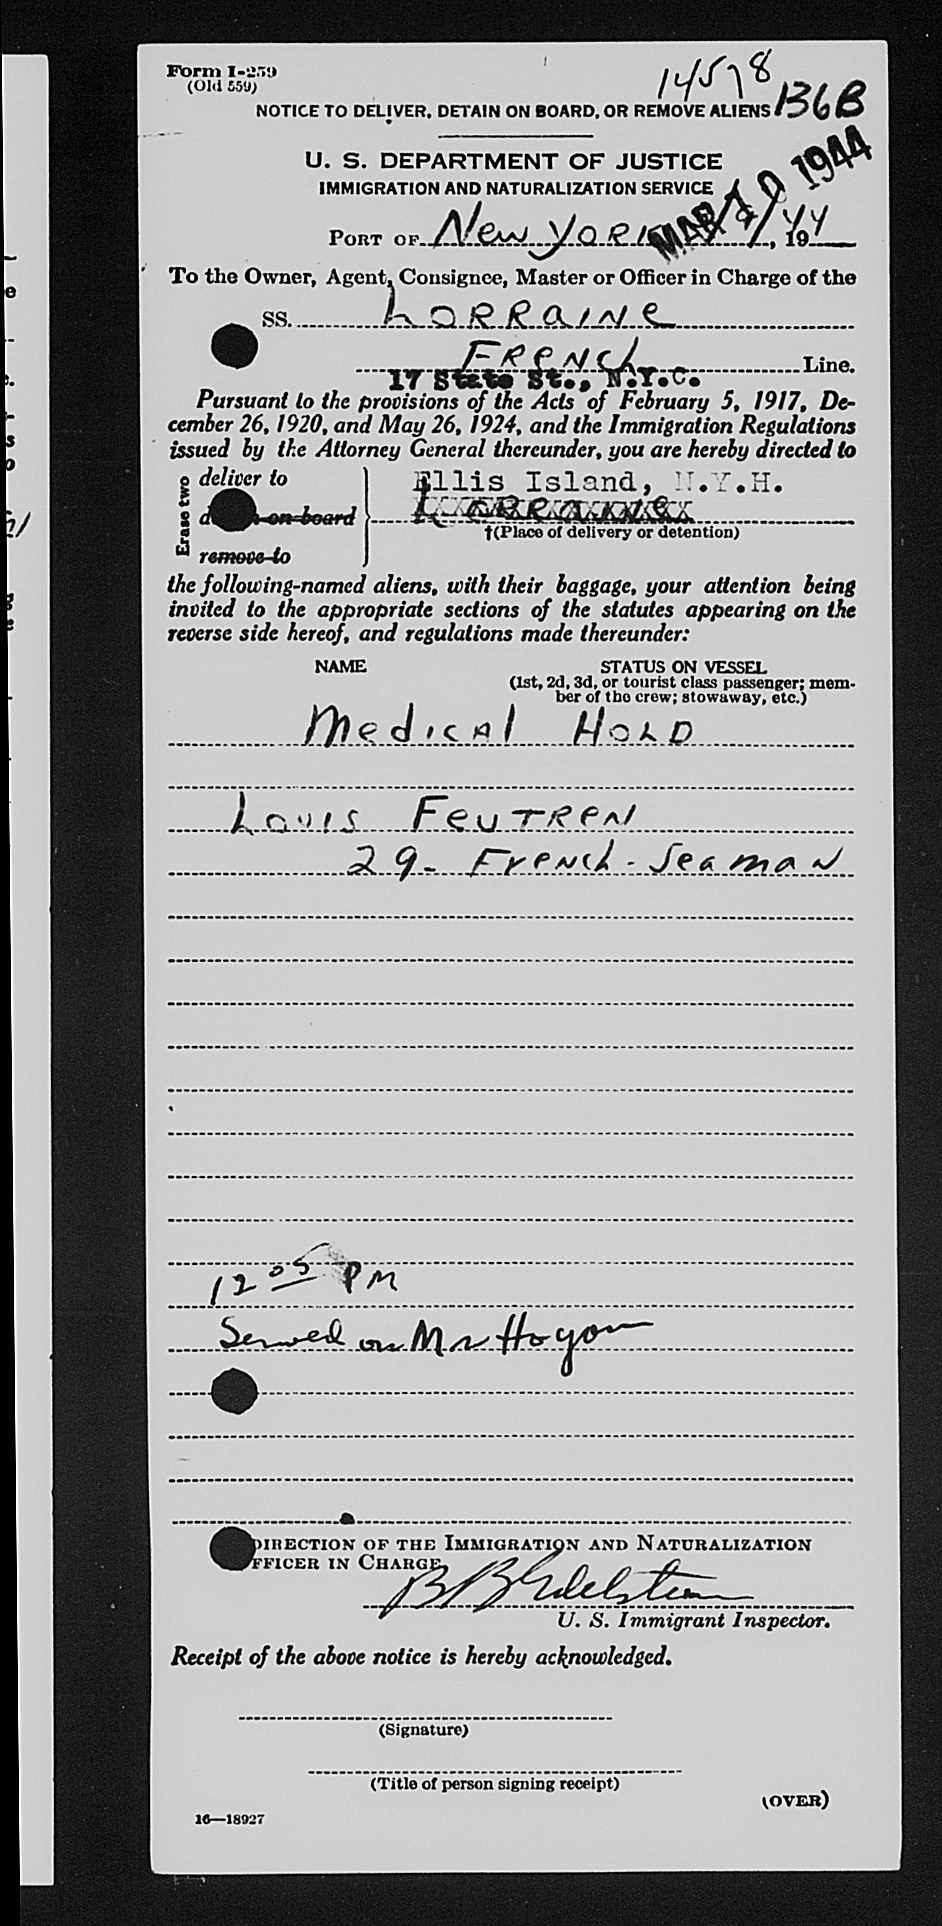 Form I-259
(Old 559)
14578
136B
NOTICE TO DELIVER, DETAIN ON BOARD, OR REMOVE ALIENS
U. S. DEPARTMENT OF JUSTICE
IMMIGRATION AND NATURALIZATION SERVICE
MAR 10 1944
PORT OF New York, 1944
To the Owner, Agent, Consignee, Master or Officer in Charge of the
SS. LORRAINE
FRENCH Line.
17 State St., N.Y.C.
Pursuant to the provisions of the Acts of February 5, 1917, De-
cember 26, 1920, and May 26, 1924, and the Immigration Regulations
issued by the Attorney General thereunder, you are hereby directed to
Erase two
deliver to
on board
remove to
Ellis Island, N.Y.H.
Lorraine
†(Place of delivery or detention)
the following-named aliens, with their baggage, your attention being
invited to the appropriate sections of the statutes appearing on the
reverse side hereof, and regulations made thereunder:
NAME
STATUS ON VESSEL
(1st, 2d, 3d, or tourist class passenger; mem-
ber of the crew; stowaway, etc.)
Medical HOLD
Louis FeuTReN
29 - French - Seaman
12 05 PM
Served on Mr Hogan
DIRECTION OF THE IMMIGRATION AND NATURALIZATION
OFFICER IN CHARGE
B B Edelstein
U. S. Immigrant Inspector.
Receipt of the above notice is hereby acknowledged.
(Signature)
(Title of person signing receipt)
(OVER)
16—18927